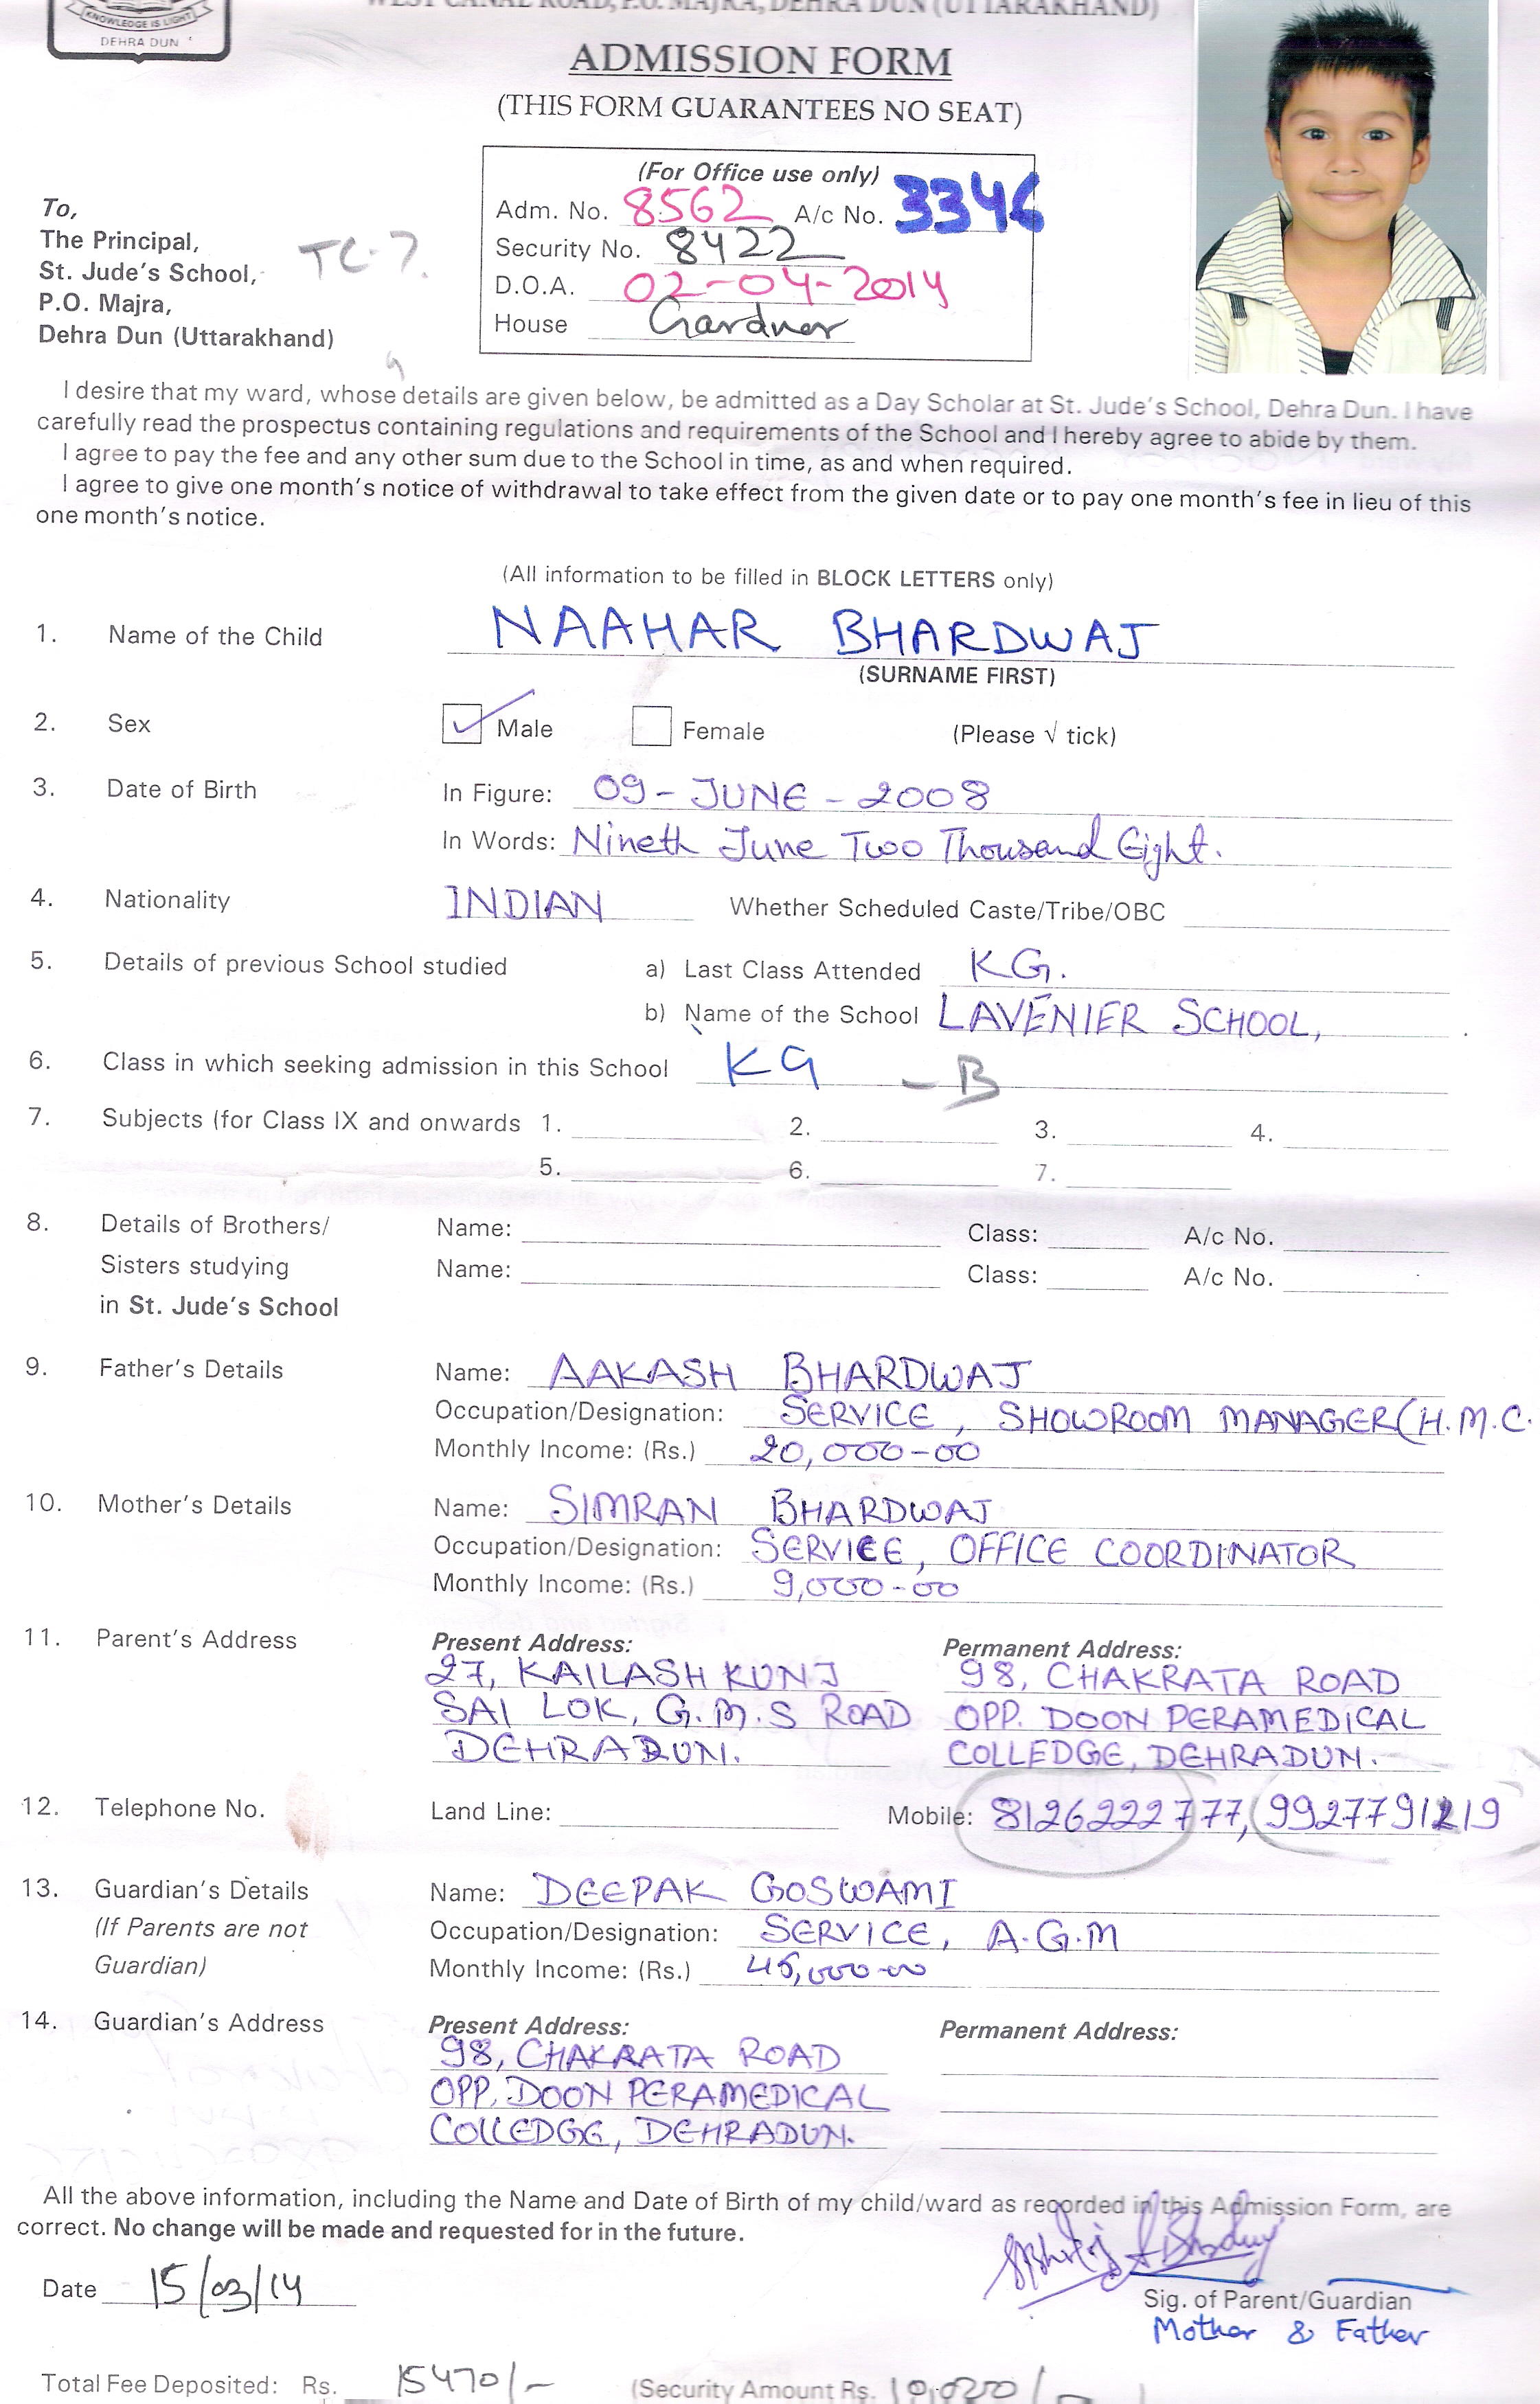 KNOWLEDGE IS LIGHT
DEHRA DUN
WEST CANAL ROAD, P.O. MAJRA, DEHRA DUN (UTTARAKHAND)
ADMISSION FORM
(THIS FORM GUARANTEES NO SEAT)
(For Office use only)
Adm. No. 8562 A/c No. 3346
Security No. 8422
D.O.A. 02-04-2014
House Gardner
To,
The Principal,
St. Jude's School,
P.O. Majra,
Dehra Dun (Uttarakhand)
TC-7.
I desire that my ward, whose details are given below, be admitted as a Day Scholar at St. Jude's School, Dehra Dun. I have
carefully read the prospectus containing regulations and requirements of the School and I hereby agree to abide by them.
I agree to pay the fee and any other sum due to the School in time, as and when required.
I agree to give one month's notice of withdrawal to take effect from the given date or to pay one month's fee in lieu of this
one month's notice.
(All information to be filled in BLOCK LETTERS only)
1. Name of the Child NAAHAR BHARDWAJ
(SURNAME FIRST)
2. Sex Male Female (Please √ tick)
3. Date of Birth In Figure: 09-JUNE-2008
In Words: Nineth June Two Thousand Eight.
4. Nationality INDIAN Whether Scheduled Caste/Tribe/OBC
5. Details of previous School studied a) Last Class Attended KG.
b) Name of the School LAVENIER SCHOOL,
6. Class in which seeking admission in this School KG - B
7. Subjects (for Class IX and onwards 1. 2. 3. 4.
5. 6. 7.
8. Details of Brothers/ Name: Class: A/c No.
Sisters studying Name: Class: A/c No.
in St. Jude's School
9. Father's Details Name: AAKASH BHARDWAJ
Occupation/Designation: SERVICE, SHOWROOM MANAGER (H.M.C.
Monthly Income: (Rs.) 20,000-00
10. Mother's Details Name: SIMRAN BHARDWAJ
Occupation/Designation: SERVICE, OFFICE COORDINATOR
Monthly Income: (Rs.) 9,000-00
11. Parent's Address Present Address: Permanent Address:
27, KAILASH KUNJ 98, CHAKRATA ROAD
SAI LOK, G.M.S ROAD OPP. DOON PERAMEDICAL
DEHRADUN. COLLEDGE, DEHRADUN.
12. Telephone No. Land Line: Mobile: 8126222777, 9927791219
13. Guardian's Details Name: DEEPAK GOSWAMI
(If Parents are not Occupation/Designation: SERVICE, A.G.M
Guardian) Monthly Income: (Rs.) 45,000-00
14. Guardian's Address Present Address: Permanent Address:
98, CHAKRATA ROAD
OPP. DOON PERAMEDICAL
COLLEDGE, DEHRADUN.
All the above information, including the Name and Date of Birth of my child/ward as recorded in this Admission Form, are
correct. No change will be made and requested for in the future.
Date 15/03/14
Sig. of Parent/Guardian
Mother & Father
Total Fee Deposited: Rs. 15470/- (Security Amount Rs. 10,000/-